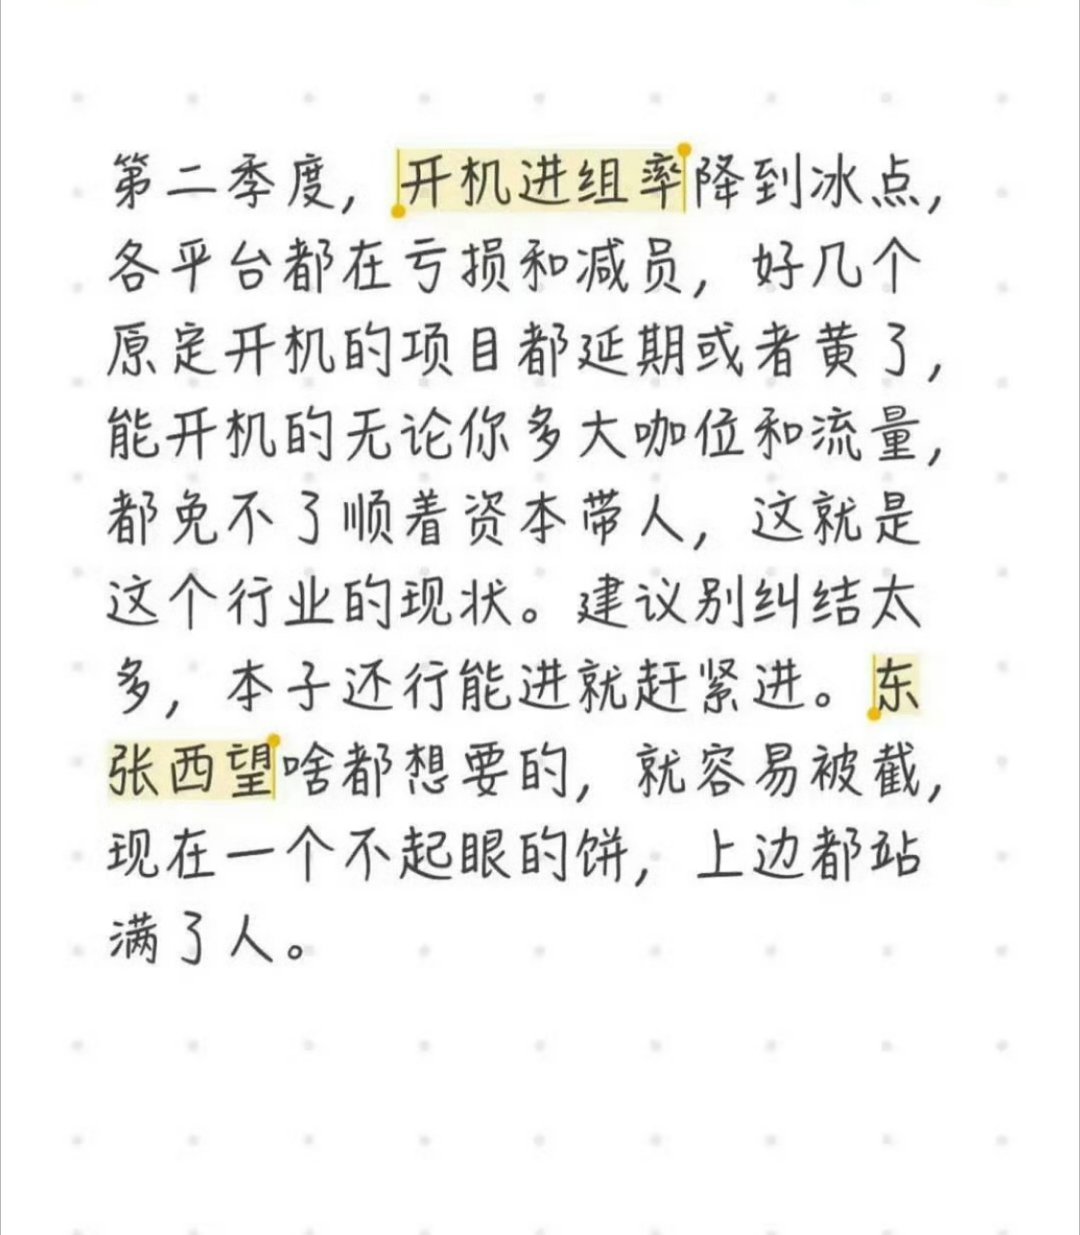 第二季度，开机进组率降到冰点，
各平台都在亏损和减员，好几个
原定开机的项目都延期或者黄了，
能开机的无论你多大咖位和流量，
都免不了顺着资本带人，这就是
这个行业的现状。建议别纠结太
多，本子还行能进就赶紧进。东
张西望啥都想要的，就容易被截，
现在一个不起眼的饼，上边都站
满了人。